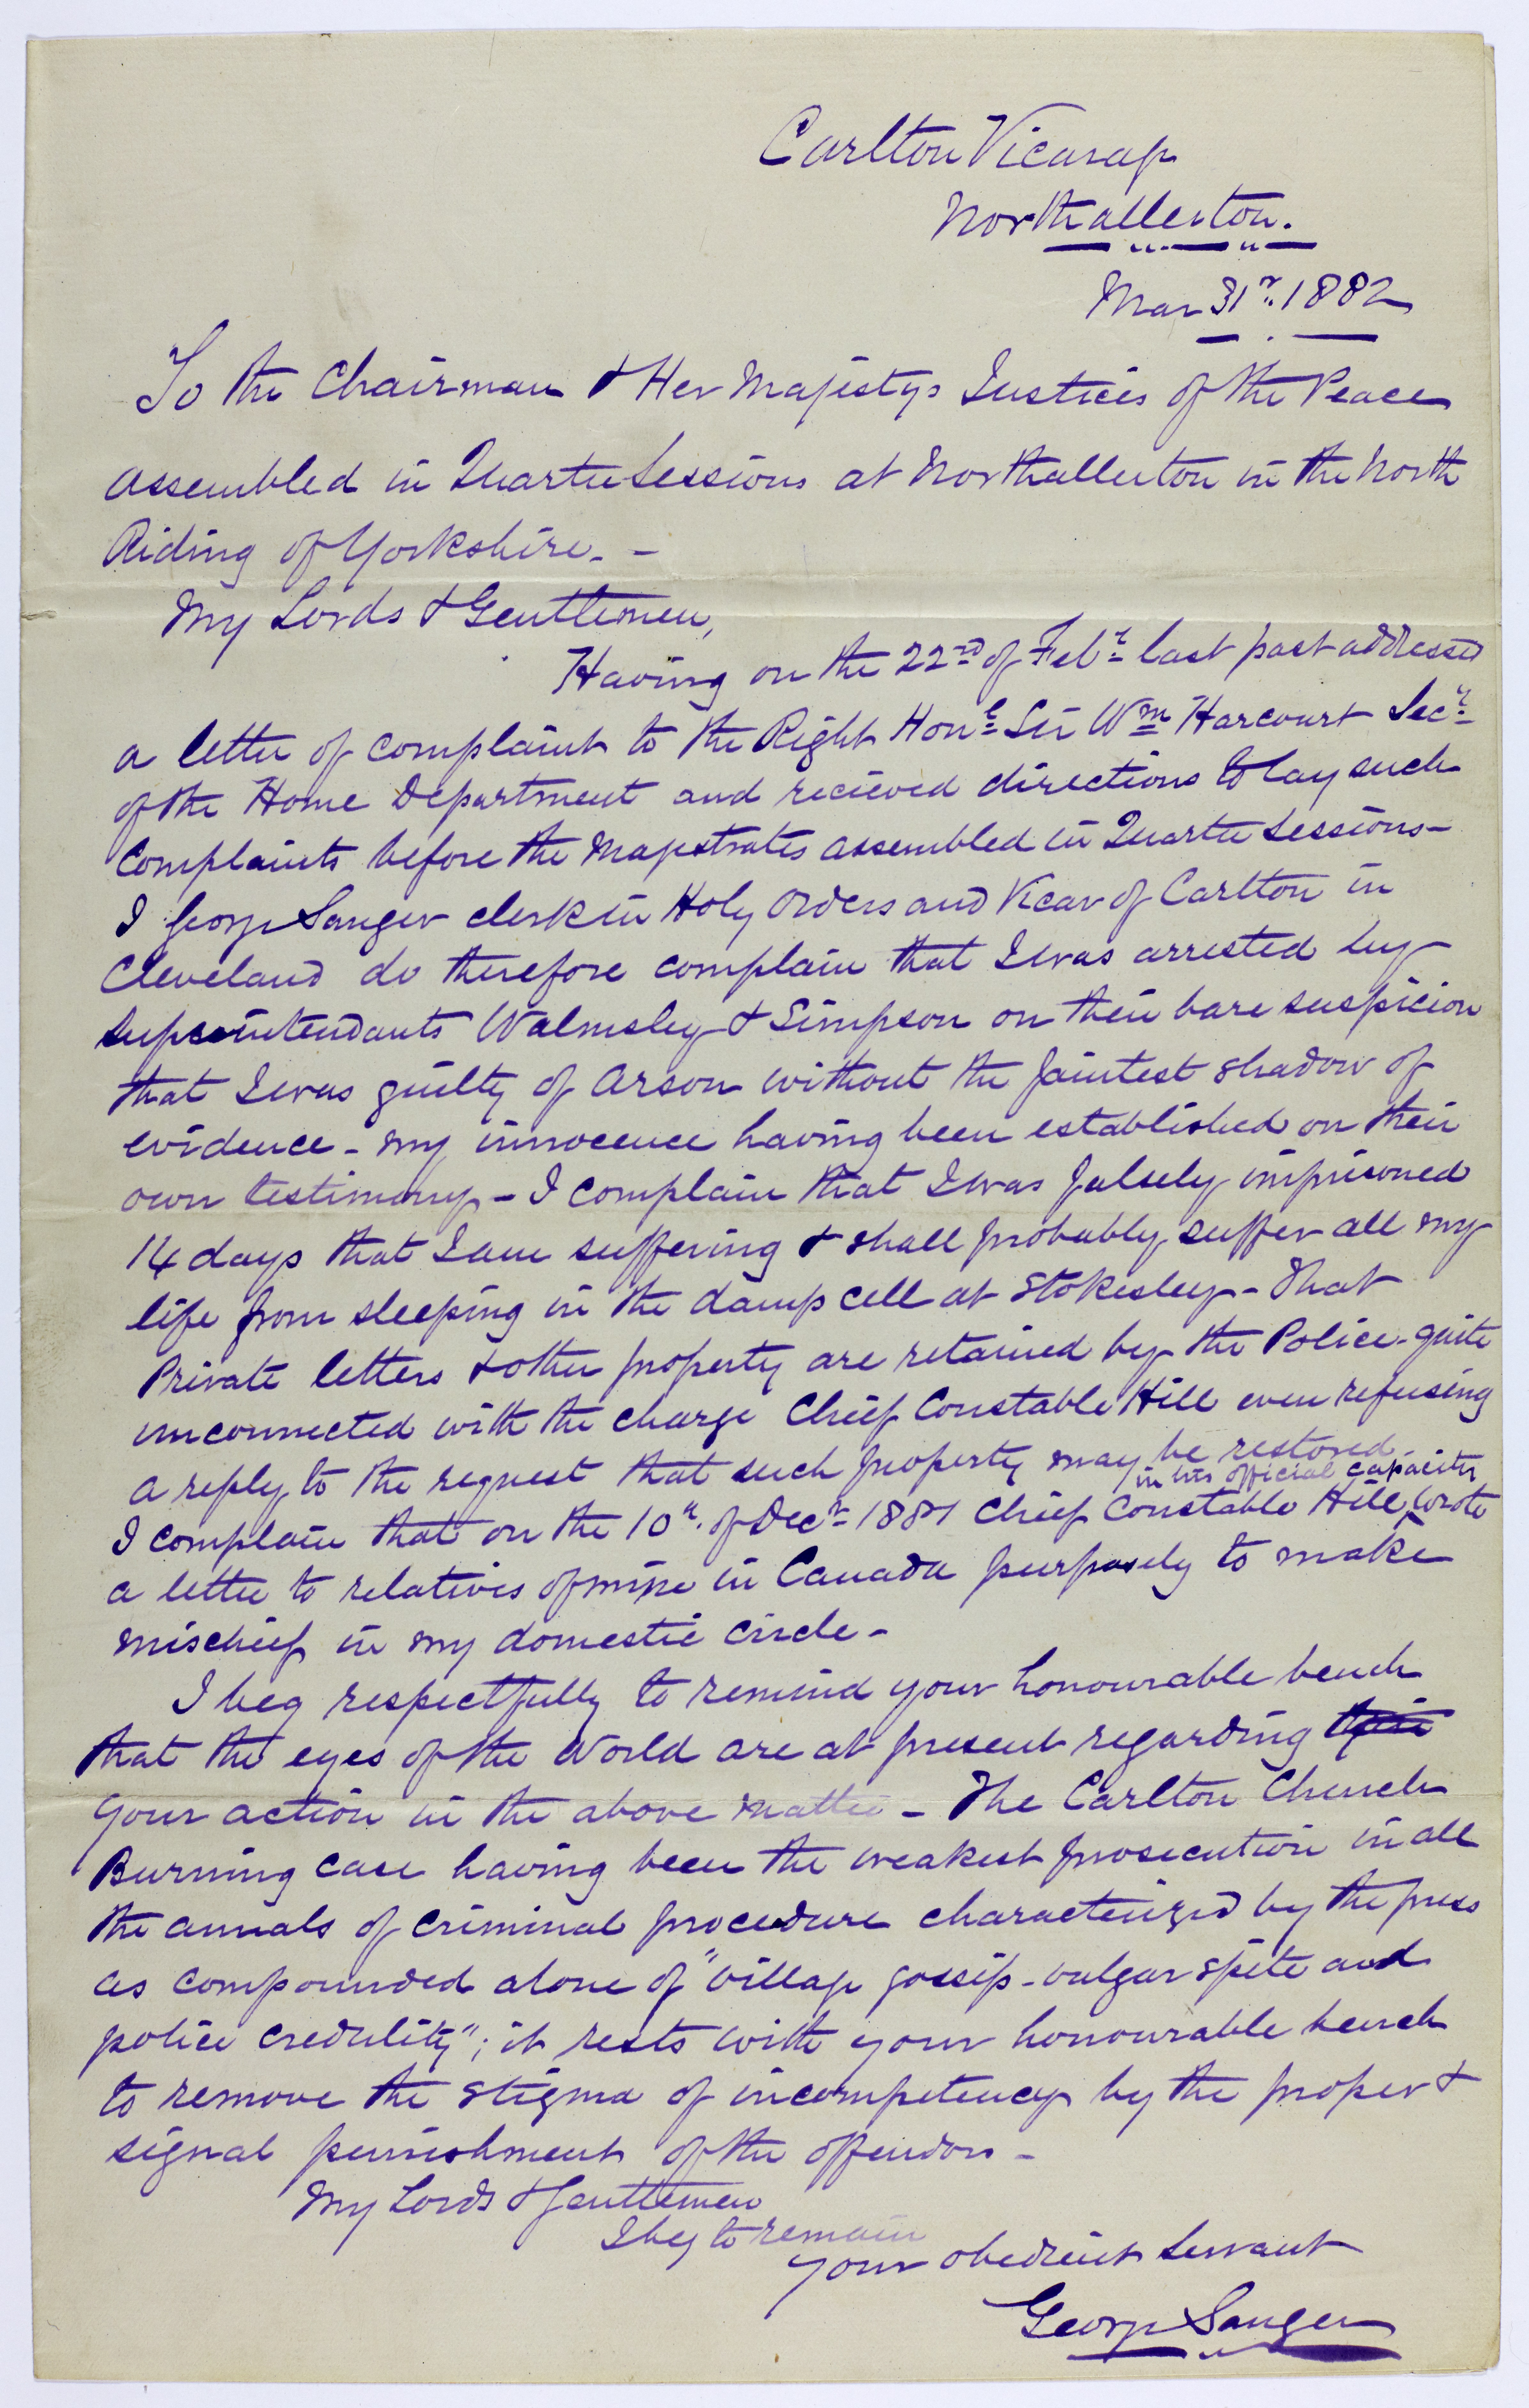 Carlton Vicarage
Northallerton.
Mar 31st. 1882
To the Chairman & Her Majestys Justices of the Peace
assembled in Quarter Sessions at Northallerton in the North
Riding of Yorkshire. -
My Lords & Gentlemen,
Having on the 22nd of Feby last past addressed
a letter of complaint to the Right Honl Sir Wm Harcourt Secy
of the Home Department and recieved directions to lay such
complaints before the Magistrates assembled in Quarter Sessions -
I George Sanger clerk in Holy Orders and Vicar of Carlton in
Cleveland do therefore complain that I was arrested by
superintendants Walmsley & Simpson on their bare suspicion
that I was guilty of Arson without the faintest shadow of
evidence - my innocence having been established on their
own testimony - I complain that I was falsely imprisoned
14 days that I am suffering & shall probably suffer all my
life from sleeping in the damp cell at Stokesley - That
Private letters & other property are retained by the Police - quite
unconnected with the charge Chief Constable Hill even refusing
a reply to the request that such property may be restored.
in his official capacity
I complain that on the 10th. of Decr 1881 Chief Constable Hill wrote
a letter to relatives of mine in Canada purposely to make
mischief in my domestic circle -
I beg respectfully to remind your honourable bench
that the eyes of the World are at present regarding their
your action in the above matter - The Carlton Church
Burning case having been the weakest prosecution in all
the annals of criminal procedure characterized by the press
as compounded alone of "village gossip - vulgar spite and
police credulity"; it rests with your honourable bench
to remove the stigma of incompetency by the proper &
signal punishment of the offendors -
My Lords & Gentlemen
I beg to remain
your obedient Servant
George Sanger